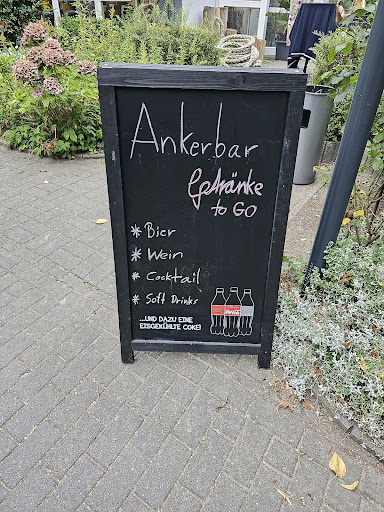 Ankerbar
Getränke
to GO
* Bier
* Wein
* Cocktail
* Soft Drinks
...UND DAZU EINE
EISGEKÜHLTE COKE!
Coca-Cola